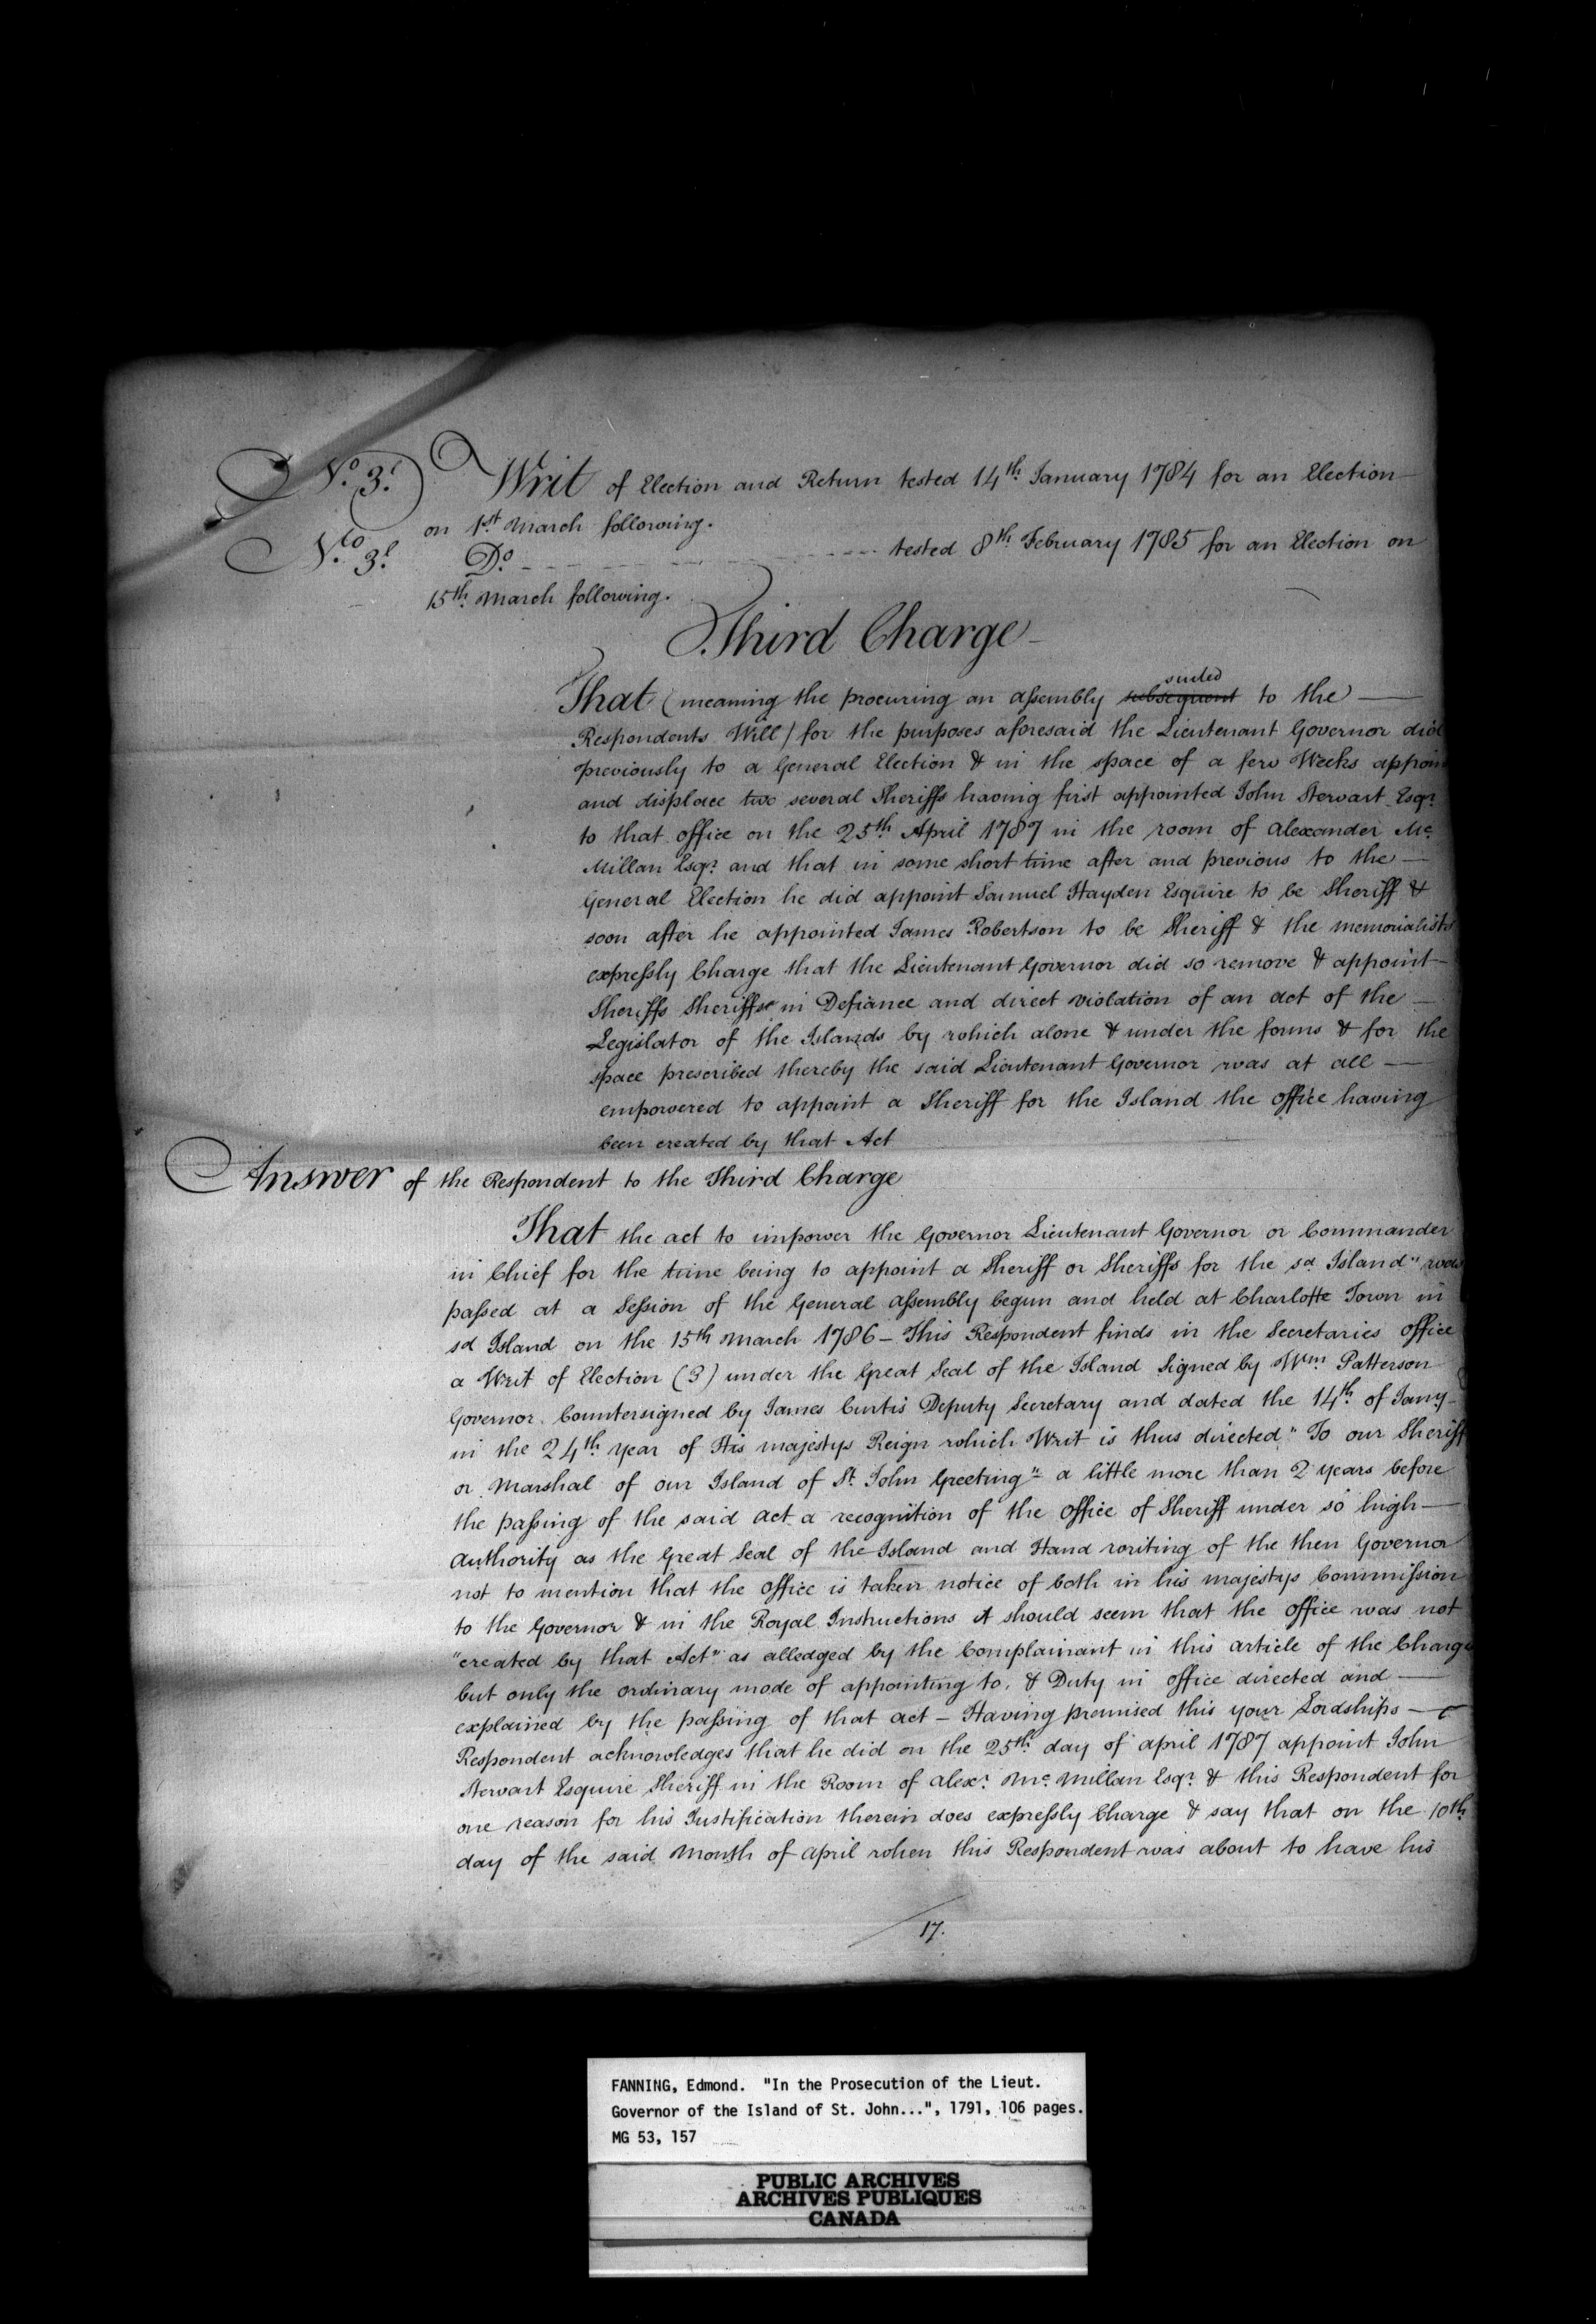 No. 3. Writ of Election and Return tested 14th. January 1784 for an Election
on 1st. March following.
No. 3. Do. tested 8th. February 1785 for an Election on
15th. March following.
Third Charge
That (meaning the procuring an assembly suited subsequent to the
Respondents Will) for the purposes aforesaid the Lieutenant Governor did
previously to a General Election & in the space of a few Weeks appoin
and displace two several Sheriffs having first appointed John Stewart Esqr.
to that office on the 25th. April 1787 in the room of Alexander Mc.
Millan Esqr. and that in some short time after and previous to the
General Election he did appoint Samuel Hayden Esquire to be Sheriff &
soon after he appointed James Robertson to be Sheriff & the memorialists
expressly Charge that the Lieutenant Governor did so remove & appoint
Sheriffs Sheriffs in Defiance and direct violation of an act of the
Legislator of the Islands by which alone & under the forms & for the
space prescribed thereby the said Lieutenant Governor was at all
empowered to appoint a Sheriff for the Island the office having
been created by that Act
Answer of the Respondent to the Third Charge
That the act to impower the Governor Lieutenant Governor or Commander
in Chief for the time being to appoint a Sheriff or Sheriffs for the sd. Island" was
passed at a Session of the General Assembly begun and held at Charlotte Town in
sd Island on the 15th March 1786 - This Respondent finds in the Secretaries office
a Writ of Election (3) under the Great Seal of the Island Signed by Wm Patterson
Governor Countersigned by James Curtis Deputy Secretary and dated the 14th. of Jany
in the 24th. year of His majestys Reign which Writ is thus directed "To our Sheriff
or Marshal of our Island of St. John Greeting" a little more than 2 years before
the passing of the said act a recognition of the office of Sheriff under so high
authority as the Great Seal of the Island and Hand writing of the then Governor
not to mention that the office is taken notice of both in his majestys Commission
to the Governor & in the Royal Instructions it should seem that the office was not
"created by that Act" as alledged by the Complainant in this article of the Charge
but only the ordinary mode of appointing to, & Duty in office directed and
explained by the passing of that act - Having premised this your Lordships
Respondent acknowledges that he did on the 25th. day of april 1787 appoint John
Stewart Esquire Sheriff in the Room of Alexr. Mc. Millan Esqr. & this Respondent for
one reason for his Justification therein does expressly Charge & say that on the 10th.
day of the said Month of april when this Respondent was about to have his
17.
FANNING, Edmond. "In the Prosecution of the Lieut.
Governor of the Island of St. John...", 1791, 106 pages.
MG 53, 157
PUBLIC ARCHIVES
ARCHIVES PUBLIQUES
CANADA